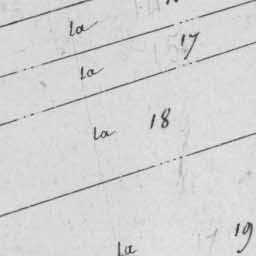 la
17
la
la 18
la 19